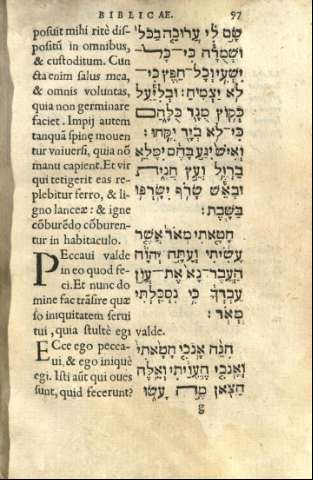 BIBLICAE. 97
posuit mihi ritè dis-
positũ in omnibus,
& custoditum. Cun
cta enim salus mea,
& omnis voluntas,
quia non germinare
faciet. Impij autem
tanquã spinę mouen
tur vniuersi, quia nõ
manu capient. Et vir
qui tetigerit eas re-
plebitur ferro, & li-
gno lanceæ: & igne
cõburẽdo cõburen-
tur in habitaculo.
Peccaui valde
in eo quod fe-
ci. Et nunc do
mine fac trãsire quæ
so iniquitatem serui
tui, quia stultè egi valde.
Ecce ego pecca-
ui, & ego iniquè
egi. Isti aũt qui oues
sunt, quid fecerunt?
שם לי ערוכה בכל
ושמרה כי־כל־
ישעי וכל־חפץ כי־
לא יצמיח: ובליעל
כקוץ מנד כלהם
כי־לא ביד יקחו:
ואיש יגע בהם ימלא
ברזל ועץ חנית
ובאש שרף ישרפו
בשבת:
חטאתי מאד אשר
עשיתי ועתה יהוה
העבר־נא את־עון
עבדך כי נסכלתי
מאד:
הנה אנכי חטאתי
ואנכי העויתי ואלה
הצאן מה עשו
g